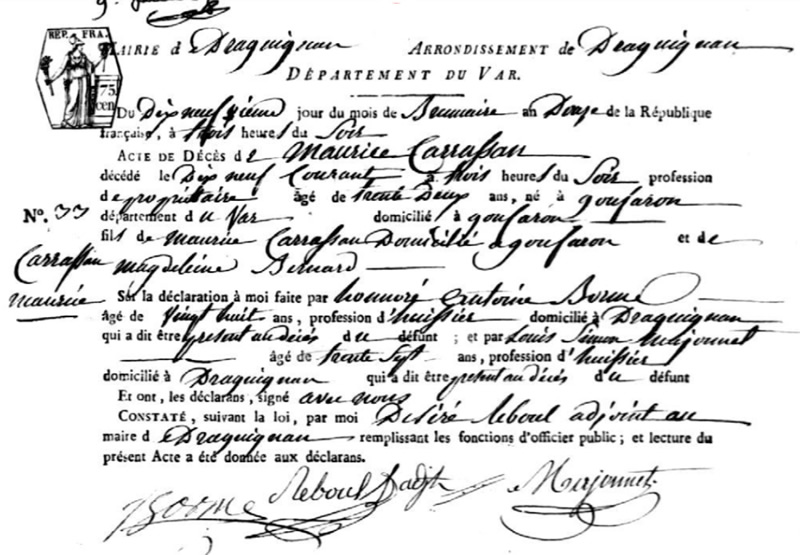 REP. FRA.
75.
cen
MAIRIE d e Draguignan ARRONDISSEMENT de Draguignan
DÉPARTEMENT DU VAR.
Du Dix neuf vieme jour du mois de Brumaire an Douze de la République
française, à trois heures du Soir
ACTE DE DÉCÈS de Maurice Carrassan
décédé le Dix neuf Courant à trois heures du Soir profession
de propriétaire âgé de trente Deux ans, né à gonfaron
No. 33 département du Var domicilié à gonfaron
fils de maurice Carrassan Domicilié a gonfaron et de
Carrassan magdeleine Bernard
maurice Sur la déclaration à moi faite par honnoré antoine Borme
âgé de Vingt huit ans, profession d'huissier domicilié à Draguignan
qui a dit être present au décés du défunt ; et par Louis Simon Marjonnet
âgé de trente Sept ans, profession d'huissier
domicilié à Draguignan qui a dit être present au décés du défunt
Et ont, les déclarans, signé avec nous
CONSTATÉ, suivant la loi, par moi Desiré Reboul adjoint au
maire de Draguignan remplissant les fonctions d'officier public ; et lecture du
présent Acte a été donnée aux déclarans.
Borme Reboul adjt Marjonnet